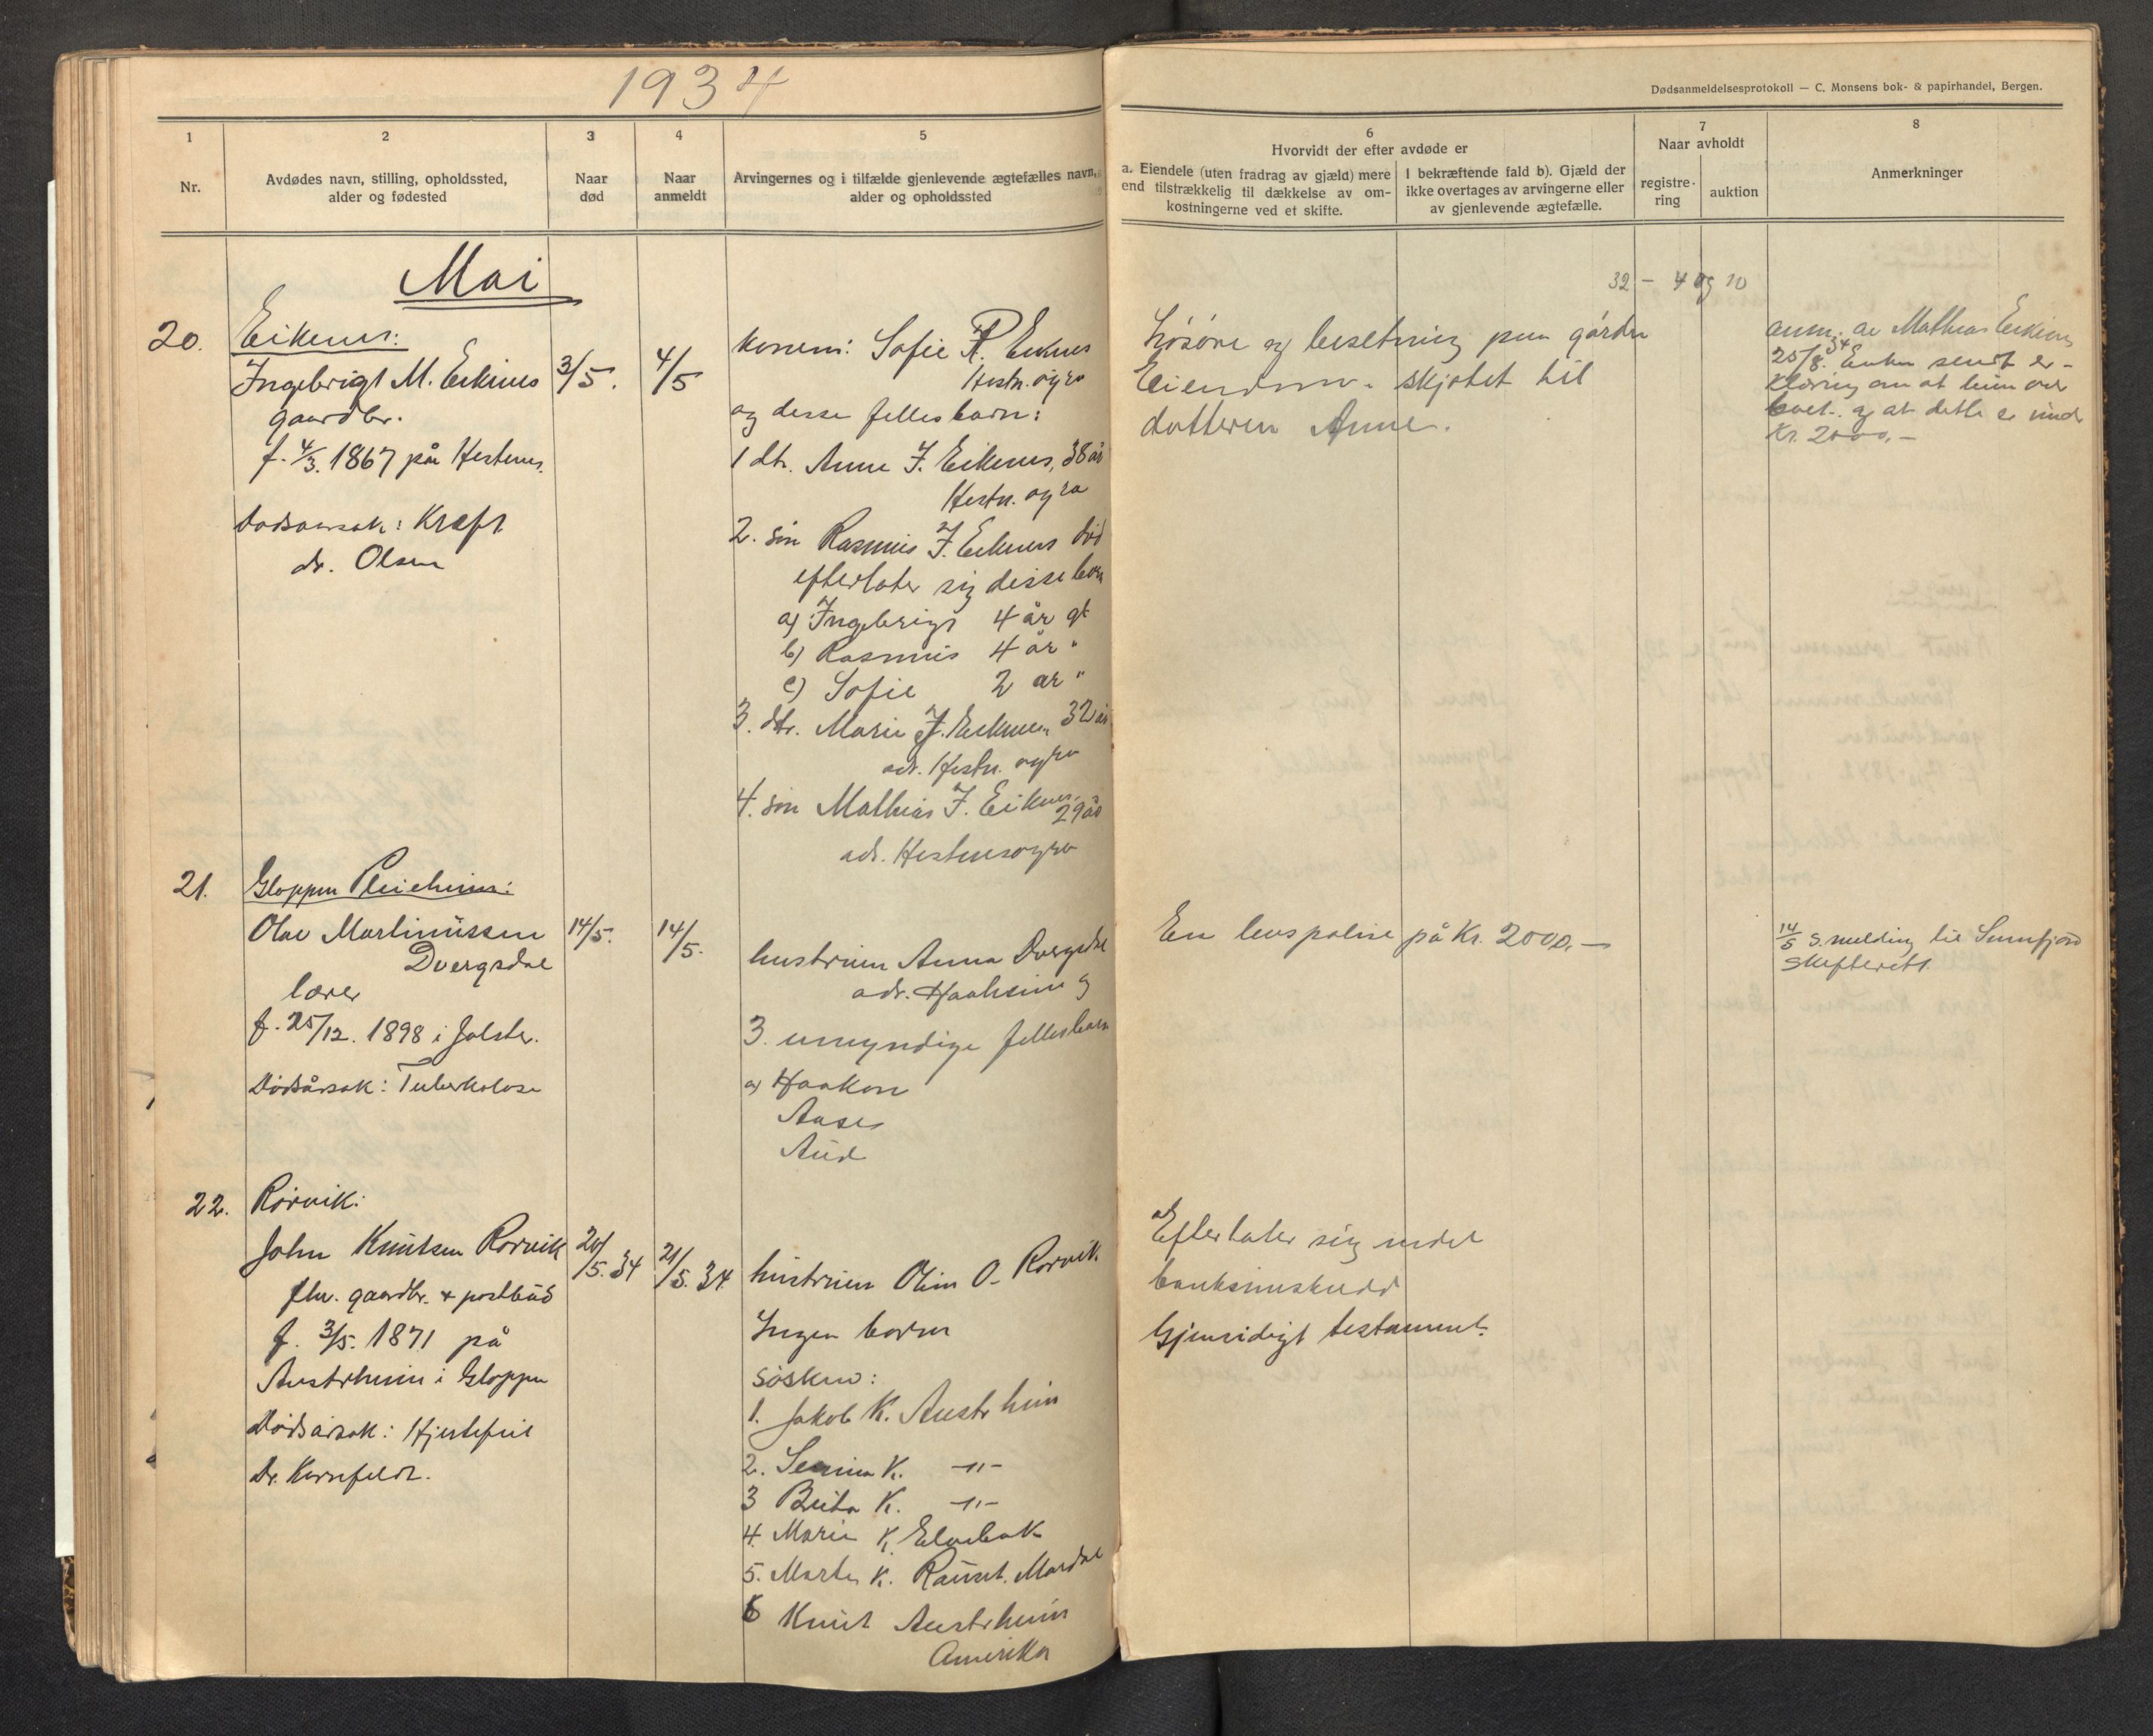 1934
Dødsanmeldelsesprotokoll — C. Monsens bok- & papirhandel, Bergen.
1
Nr.
2
Avdødes navn, stilling, opholdssted,
alder og fødested
3
Naar
død
4
Naar
anmeldt
5
Arvingernes og i tilfælde gjenlevende ægtefælles navn,
alder og opholdssted
6
Hvorvidt der efter avdøde er
a. Eiendele (uten fradrag av gjæld) mere
end tilstrækkelig til dækkelse av om-
kostningerne ved et skifte.
I bekræftende fald b). Gjæld der
ikke overtages av arvingerne eller
av gjenlevende ægtefælle.
7
Naar avholdt
registre-
ring
auktion
8
Anmerkninger
Mai
20.
Eiknes:
Ingebrigt M. Eiknes
gaardbr.
f. 4/3. 1867 på Hestenes.
Dødsårsak: Kreft
dr. Olsen
3/5.
4/5
konen: Sofie R. Eiknes
Hestn.øyra
og desse felles barn:
1 dtr. Anne I. Eiknes, 38 år
Hestn. øyra
2. søn Rasmus I. Eiknes død
efterlater sig disse born
a) Ingebrigt 4 år gl
b) Rasmus 4 år "
c) Sofie 2 år "
3. dtr. Marie I. Eiknes, 32 år
adr. Hestn. øyra
4. søn Mathias I. Eiknes, 29 år
adr. Hestnesøyra
32 - 4 og 10
Løsøre og besetning på gården
Eiendom. skjøtet til
datteren Anne.
anm. av Mathias Eiknes
25/8. 34 Enken sendt er-
klæring om at hun over
boet. og at dette er under
Kr. 2000,-
21.
Gloppen Pleieheim:
Olav Martinussen
Dvergsdal
lærer
f. 25/12. 1898 i Jølster.
Dødsårsak: Tuberkolose
14/5.
14/5.
hustruen Anna Dvergsdal
adr. Haaheim og
3. umyndige fellesbarn
a) Haakon
Aase
Aud
En livspolise på Kr. 2000,-
14/5 s. melding til Sunnfjord
skifterett.
22.
Rørvik:
John Knutsen Rørvik
fhv. gaardbr. & postbud
f. 3/5. 1871 på
Austrheim i Gloppen
Dødsårsak: Hjertefeil
Dr. Kornfeldt.
20/5. 34
21/5. 34
hustruen Oline O. Rørvik
Ingen barn
søsken:
1. Jakob K. Austrheim
2. Semina K. -"-
3 Brita K. -"-
4. Marie K. Elvebak
5. Marte K. Raunet. Mardal
6 Knut Austrheim
Amerika
a) Efterlater sig endel
bankinnskudd
Gjensidigt testament.